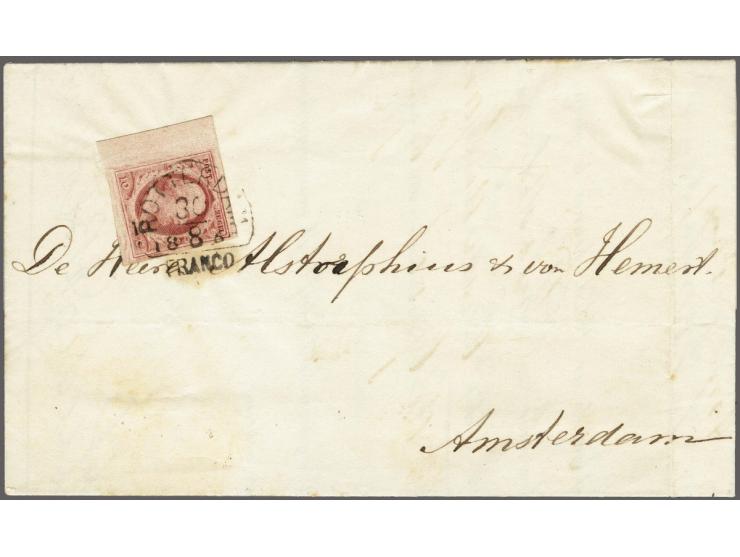 ROTTERDAM
30
8
FRANCO
De Heeren Alstorphius & von Hemert.
Amsterdam